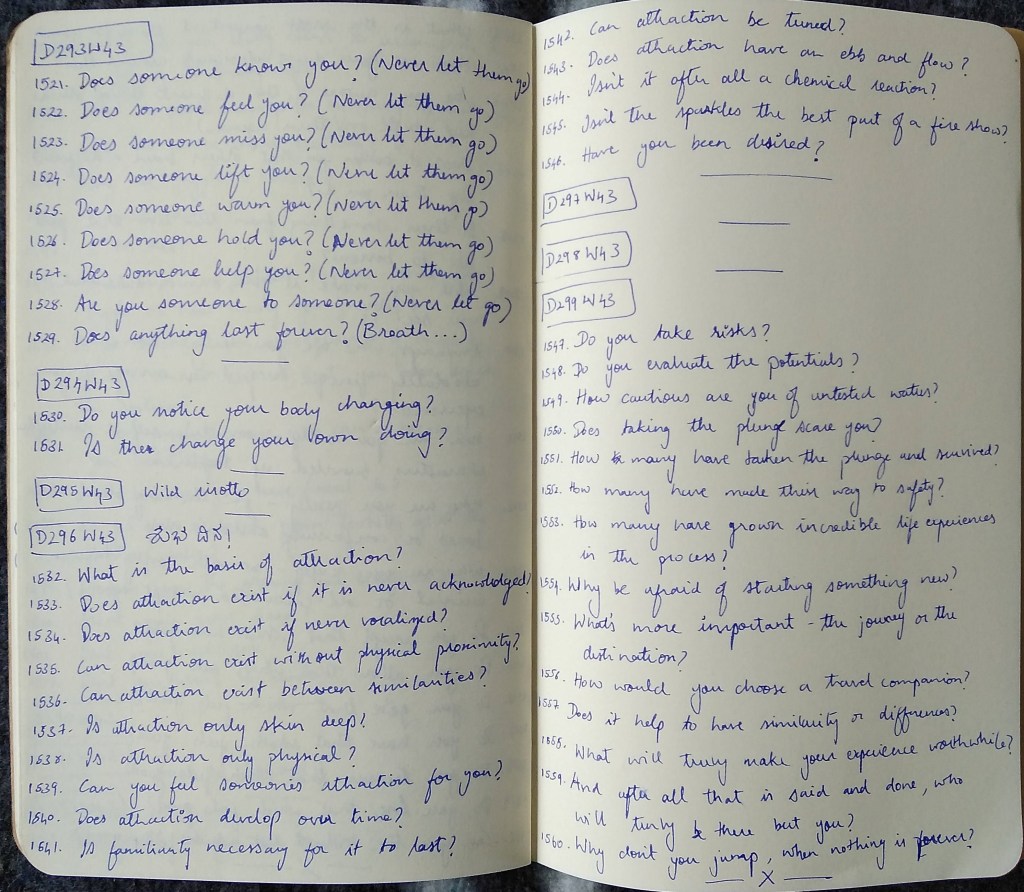 D293W43
1521. Does someone know you? (Never let them go)
1522. Does someone feel you? (Never let them go)
1523. Does someone miss you? (Never let them go)
1524. Does someone lift you? (Never let them go)
1525. Does someone warm you? (Never let them go)
1526. Does someone hold you? (Never let them go)
1527. Does someone help you? (Never let them go)
1528. Are you someone to someone? (Never let go)
1529. Does anything last forever? (Breath...)
D294W43
1530. Do you notice your body changing?
1531. Is the change your own doing?
D295W43 Wild risotto
D296W43 ಶುಭ ದಿನ!
1532. What is the basis of attraction?
1533. Does attraction exist if it is never acknowledged?
1534. Does attraction exist if never vocalized?
1535. Can attraction exist without physical proximity?
1536. Can attraction exist between similarities?
1537. Is attraction only skin deep?
1538. Is attraction only physical?
1539. Can you feel someone's attraction for you?
1540. Does attraction develop over time?
1541. Is familiarity necessary for it to last?
1542. Can attraction be tuned?
1543. Does attraction have an ebb and flow?
1544. Isn't it after all a chemical reaction?
1545. Isn't the sparkles the best part of a fire show?
1546. Have you been desired?
D297W43
D298W43
D299W43
1547. Do you take risks?
1548. Do you evaluate the potentials?
1549. How cautious are you of untested waters?
1550. Does taking the plunge scare you?
1551. How many have taken the plunge and survived?
1552. How many have made their way to safety?
1553. How many have grown incredible life experiences
in the process?
1554. Why be afraid of starting something new?
1555. What's more important - the journey or the
destination?
1556. How would you choose a travel companion?
1557. Does it help to have similarity or differences?
1558. What will truly make your experience worthwhile?
1559. And after all that is said and done, who
will truly be there but you?
1560. Why don't you jump, when nothing is forever?
X